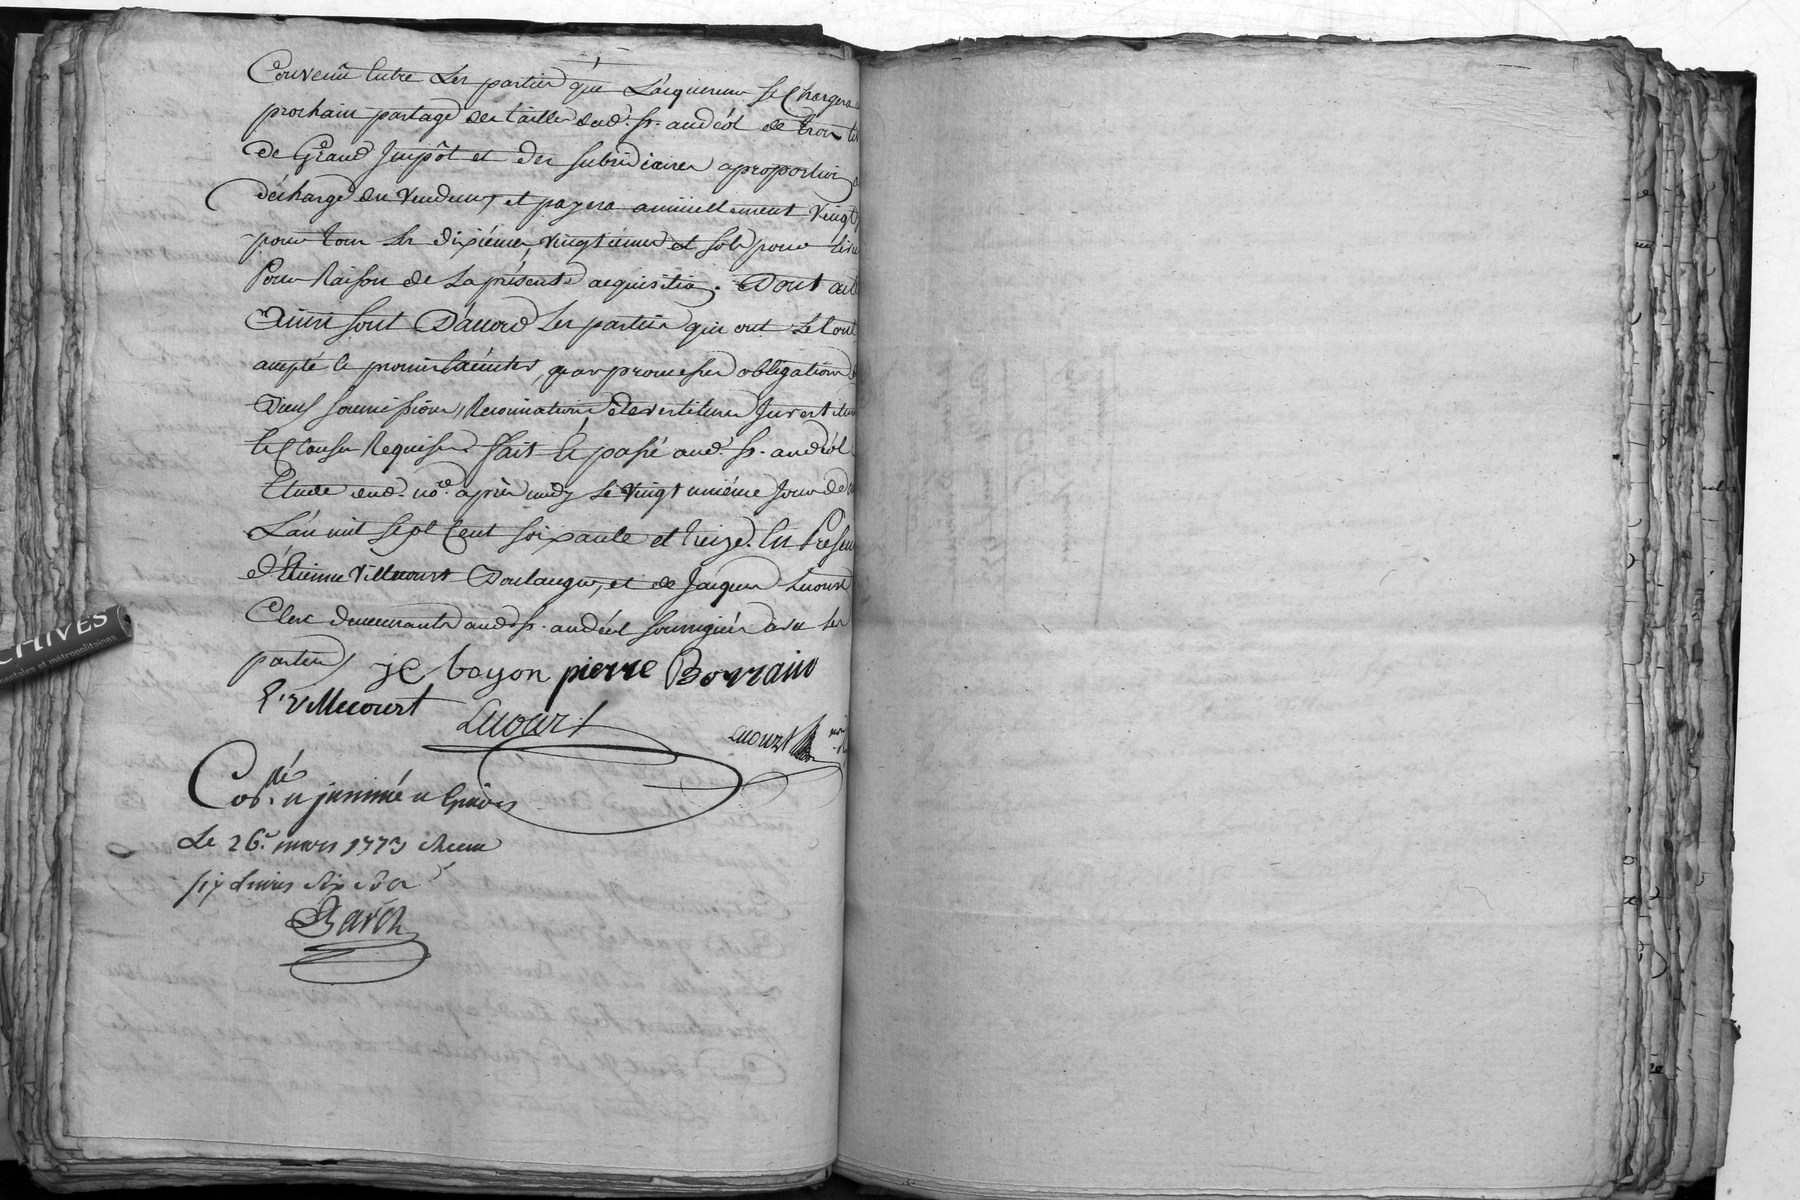 Convenu Entre Les parties que L'acquereur se Chargera
prochain partage des tailles dud. st. andéol de trois
de Grand Impôt et des subsidiaires aproportion
décharge du Vendeur, et payera annuellement Vingt
pour tous Les dixiémes, vingtiémes et sols pour livre
Pour Raison de La présente acquisition. Dont acte
Ainsi sont D'accord Les parties qui ont Le tout
accepté le promis par promesses obligations
soumissions, Renonciations, devestiture Investiture
Et Clauses Requises. fait Et passé aud. st. andéol
Etude dud. no.re après midy Le Vingt uniéme Jour de
L'an mil sept Cent soixante et treize. En Présence
d'Etienne Villecourt Boulanger, et de Jacques Lucourt
Clerc demeurants aud. st. andéol soussignés avec Les
parties je boyon pierre Borrain
E. Villecourt
Lucourt
Lucourt
Con.lé et
Le 26.e mars 1773 Reçu
six livres dix sols
Barth
CHIVES
mentales et métropolitaines